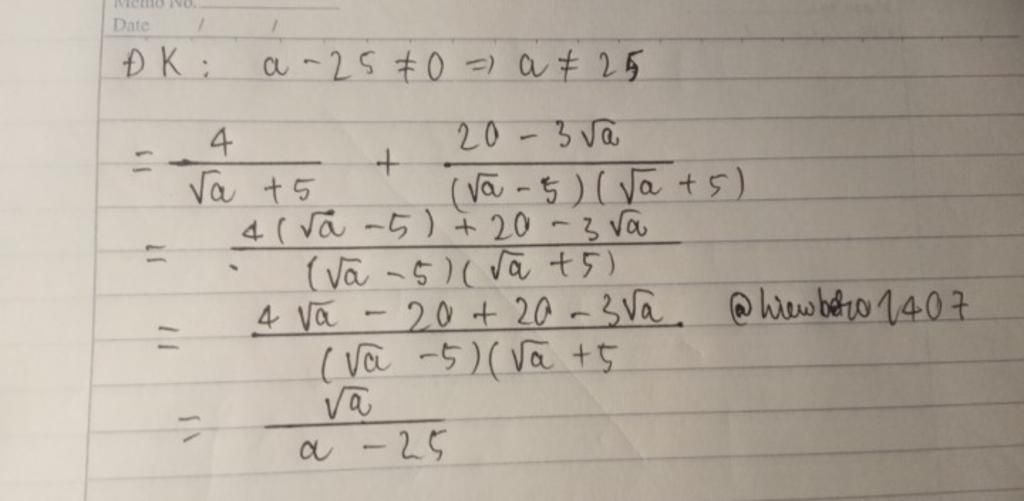 Memo No.
Date / /
ĐK: a - 25 ≠ 0 => a ≠ 25
= 4/(√a + 5) + (20 - 3√a)/((√a - 5)(√a + 5))
= (4(√a - 5) + 20 - 3√a)/((√a - 5)(√a + 5))
= (4√a - 20 + 20 - 3√a)/((√a - 5)(√a + 5
= √a/(a - 25)